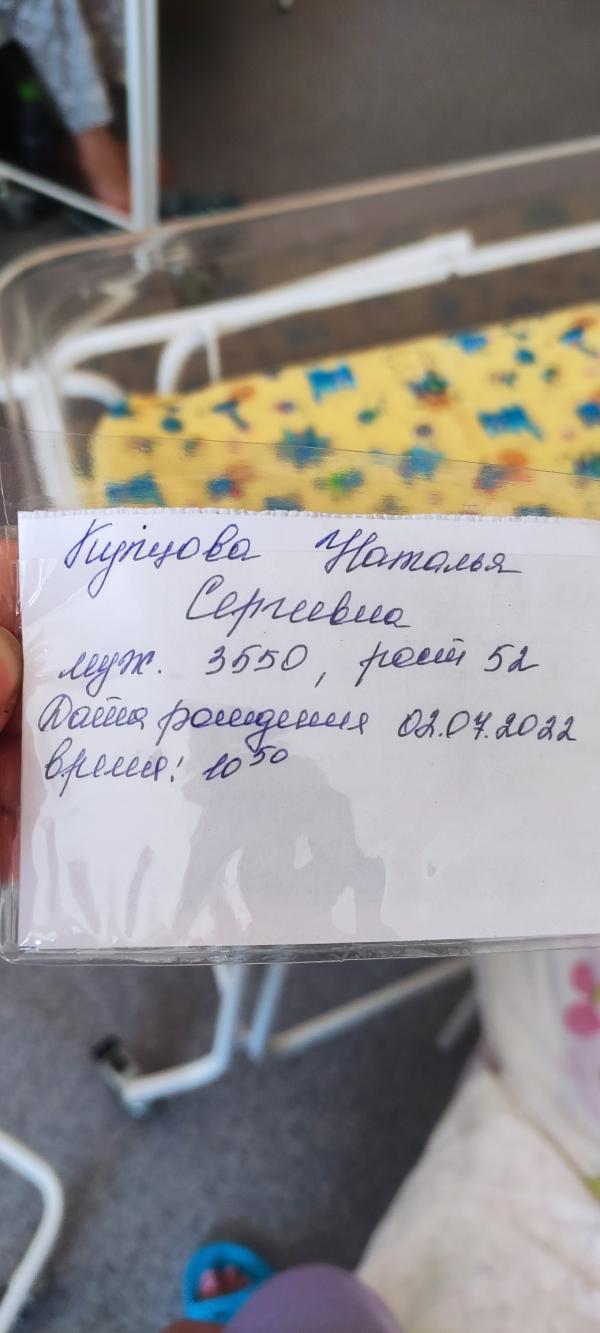 Купцова Наталья
Сергеевна
муж. 3550, рост 52
Дата рождения 02.07.2022
время: 10 50